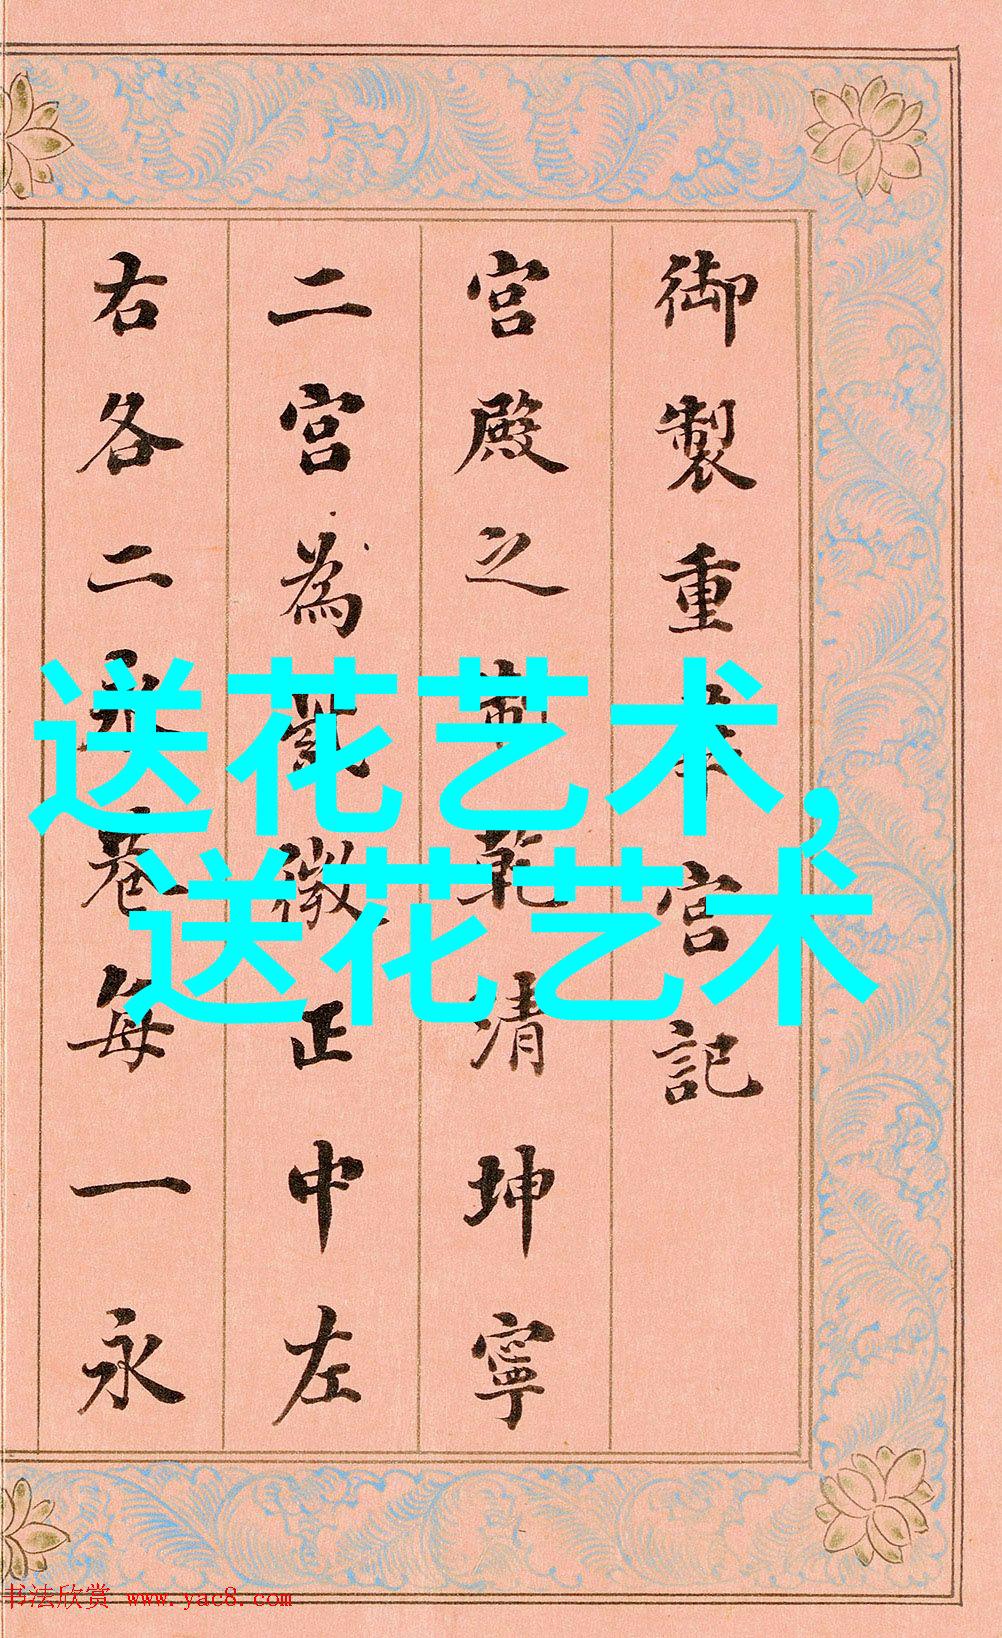 御製重華宮記
宮殿之制乾清坤寧
二宮為紫微正中左
右各二永巷每一永
送花艺术,
送花艺术
书法欣赏 www.yac8.com